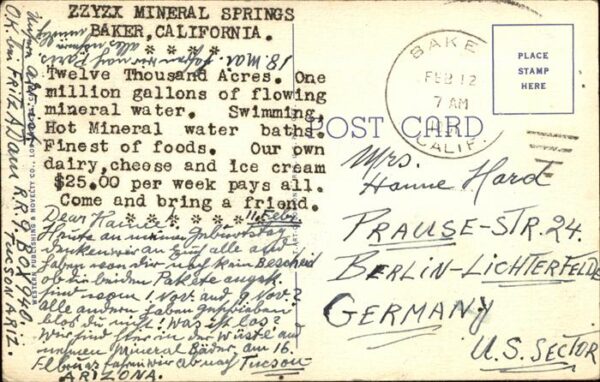 ZZYZX MINERAL SPRINGS
BAKER, CALIFORNIA.
* * * *
Twelve Thousand Acres. One
million gallons of flowing
mineral water. Swimming,
Hot Mineral water baths.
Finest of foods. Our own
dairy, cheese and ice cream
$25.00 per week pays all.
Come and bring a friend.
* * * * * * *
11. Febr.
Dear Hanne!
Heute an meinem Geburtstag
denken wir an Euch alle und
haben von dir noch kein Bescheid
ob die beiden Pakete angek.
sind vom 1. Nov. und 9. Nov.?
Alle andern haben geschrieben
blos du nicht! Was ist los?
Wir sind hier in der Wüste und
nehmen Mineral Bäder, am 16.
Feb. fahren wir ab nach Tucson
ARIZONA.
18. Mar. fahren wir nach Paris
FRITZ ADAM R.R. 9 BOX 940,
TUCSON ARIZ.
WESTERN PUBLISHING & NOVELTY CO., LOS
POST CARD
BAKE
FEB 12
7 AM
CALIF.
PLACE
STAMP
HERE
Mrs.
Hanne Hard
PRAUSE-STR. 24.
BERLIN-LICHTERFELDE
GERMANY
U.S. SECTOR